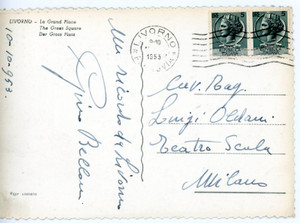 LIVORNO - La Grand Place
The Great Square
Der Gross Platz
10-10-953.
Un ricordo da Livorno
Gino Bellani
LIVORNO
1953
Cav. Rag.
Luigi Oldani
Teatro Scala
Milano